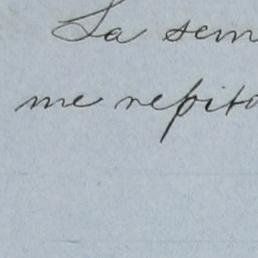 La sem
me repito